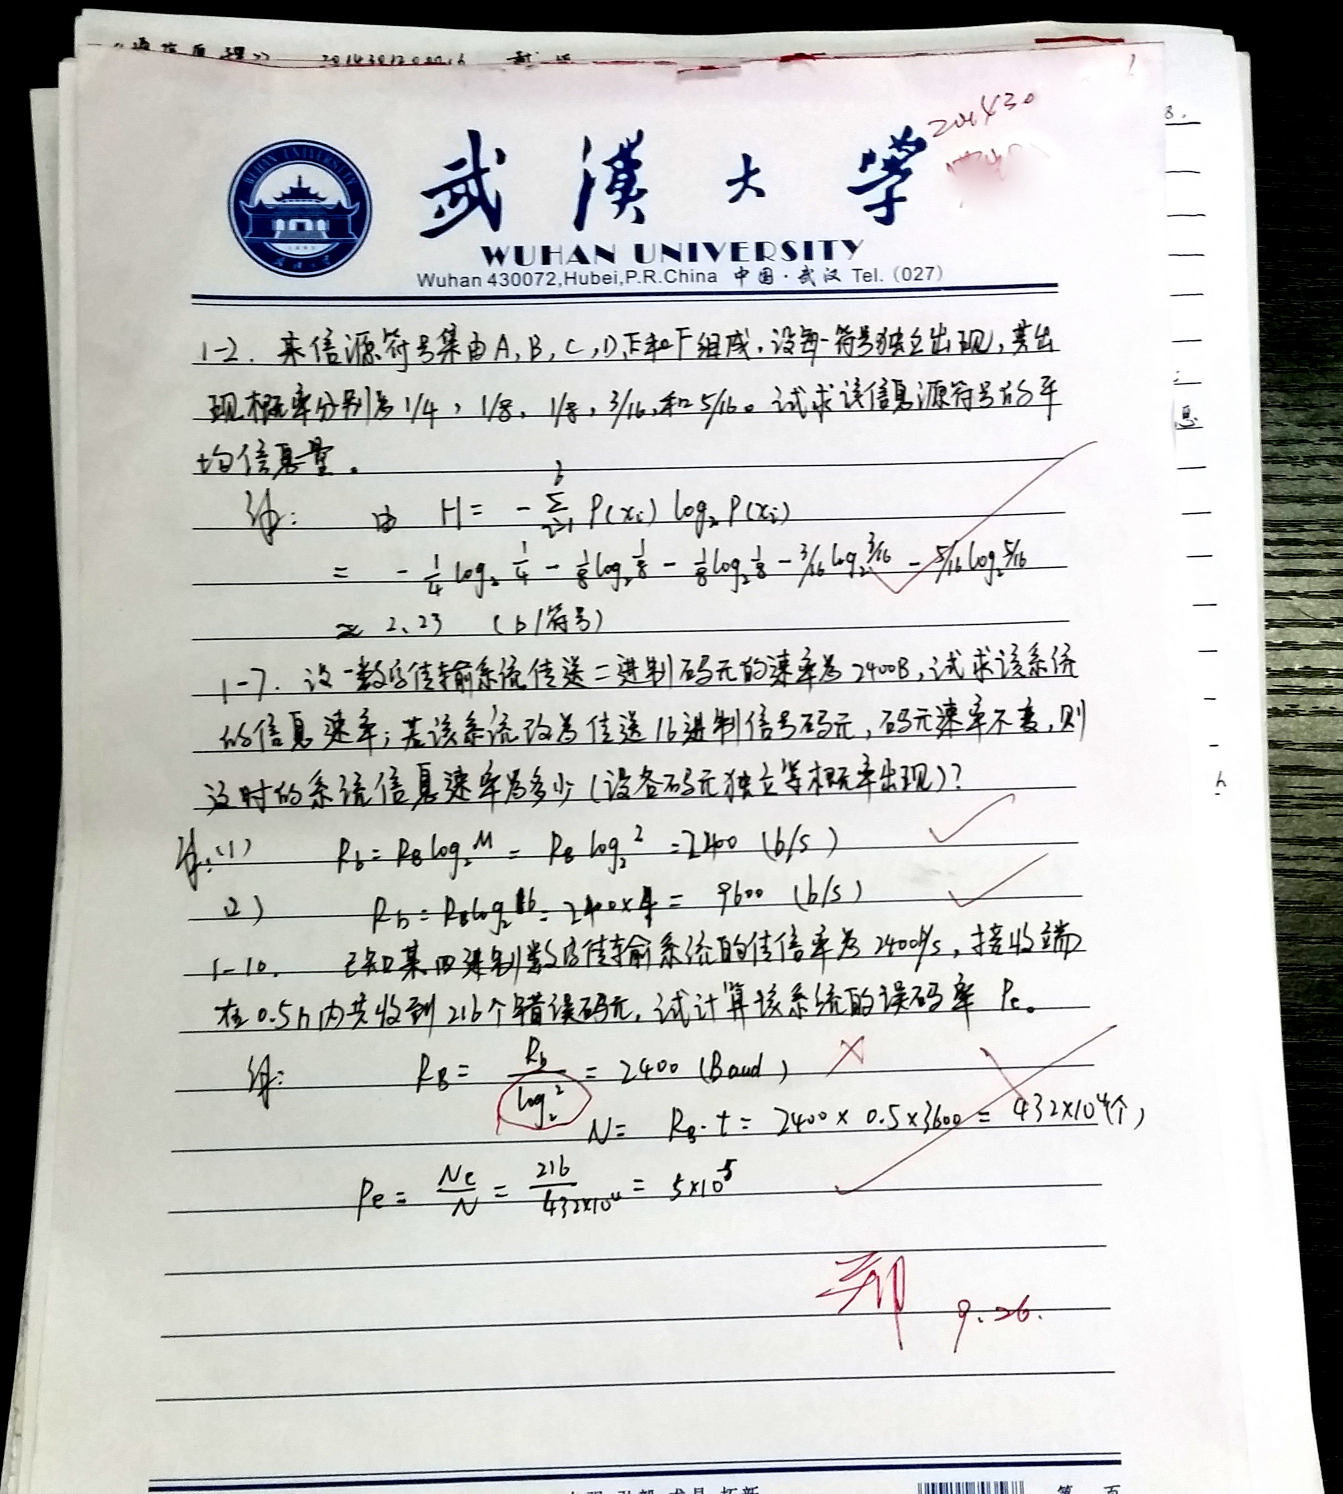 201430
武漢大学
WUHAN UNIVERSITY
WUHAN UNIVERSITY
Wuhan 430072,Hubei,P.R.China 中国·武汉 Tel. (027)
1-2. 某信源符号集由A,B,C,D,E和F组成,设每一符号独立出现,其出
现概率分别为1/4, 1/8, 1/8, 3/16,和5/16。试求该信息源符号的平
均信息量。
解: 由 H= -∑ P(xi) log₂ P(xi)
= -1/4 log₂ 1/4 - 1/8 log₂ 1/8 - 1/8 log₂ 1/8 - 3/16 log₂ 3/16 - 5/16 log₂ 5/16
≈ 2.23 (b/符号)
1-7. 设一数字传输系统传送二进制码元的速率为2400B,试求该系统
的信息速率;若该系统改为传送16进制信号码元,码元速率不变,则
这时的系统信息速率为多少(设各码元独立等概率出现)?
解:(1) Rb = RB log₂ M = RB log₂ 2 = 2400 (b/s)
2) Rb = RB log₂ 16 = 2400×4 = 9600 (b/s)
1-10. 已知某四进制数字传输系统的传信率为2400b/s,接收端
在0.5h内共收到216个错误码元,试计算该系统的误码率 Pe。
解: RB = Rb/log₂ 2 = 2400 (Baud)
N = RB·t = 2400 × 0.5×3600 = 432×10⁴(个)
Pe = Ne/N = 216/432×10⁴ = 5×10⁻⁵
9.26.
第 页